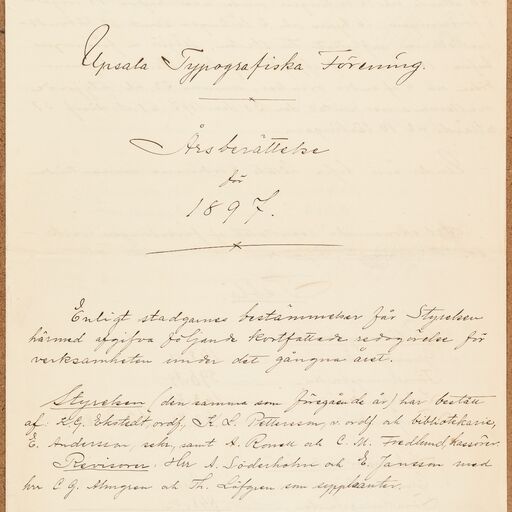 Upsala Typografiska Förening.
Årsberättelse
för
1897.
Enligt stadgarnes bestämmelser får Styrelsen
härmed afgifva följande kortfattade redogörelse för
verksamheten under det gångna året.
Styrelsen (den samma som föregående år) har bestått
af: K.G. Ekstedt, ordf, K. L. Pettersson, v. ordf och bibliotekarie,
E. Andersson, sekr, samt A. Ronell och C. M. Fredlund, kassörer.
Revisorer: Hrr A. Söderholm och E. Jansson med
hrr C G. Almgren och Th. Löfgren som suppleanter.